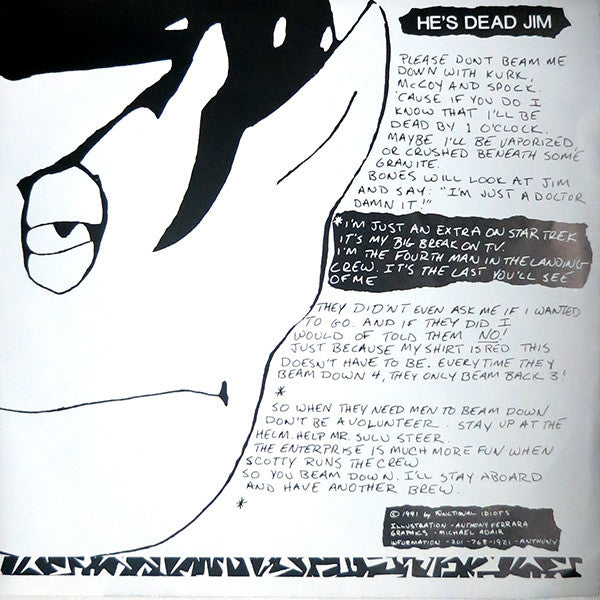 HE'S DEAD JIM
PLEASE DONT BEAM ME
DOWN WITH KURK,
MCCOY AND SPOCK.
'CAUSE IF YOU DO I
KNOW THAT I'LL BE
DEAD BY 1 O'CLOCK.
MAYBE I'LL BE VAPORIZED,
OR CRUSHED BENEATH SOME
GRANITE.
BONES WILL LOOK AT JIM
AND SAY: "I'M JUST A DOCTOR
DAMN IT!"
*I'M JUST AN EXTRA ON STAR TREK
IT'S MY BIG BREAK ON TV.
I'M THE FOURTH MAN IN THE LANDING
CREW. IT'S THE LAST YOU'LL SEE
OF ME
THEY DID'NT EVEN ASK ME IF I WANTED
TO GO. AND IF THEY DID I
WOULD OF TOLD THEM NO!
JUST BECAUSE MY SHIRT IS RED THIS
DOESN'T HAVE TO BE. EVERYTIME THEY
BEAM DOWN 4, THEY ONLY BEAM BACK 3!
*
SO WHEN THEY NEED MEN TO BEAM DOWN
DON'T BE A VOLUNTEER. STAY UP AT THE
HELM. HELP MR. SULU STEER.
THE ENTERPRISE IS MUCH MORE FUN WHEN
SCOTTY RUNS THE CREW
SO YOU BEAM DOWN. I'LL STAY ABOARD
AND HAVE ANOTHER BREW.
*
© 1991 by FUNCTIONAL IDIOTS
ILLUSTRATION - ANTHONY FERRARA
GRAPHICS - MICHAEL ADAIR
INFORMATION - 201-768-1921 - ANTHONY